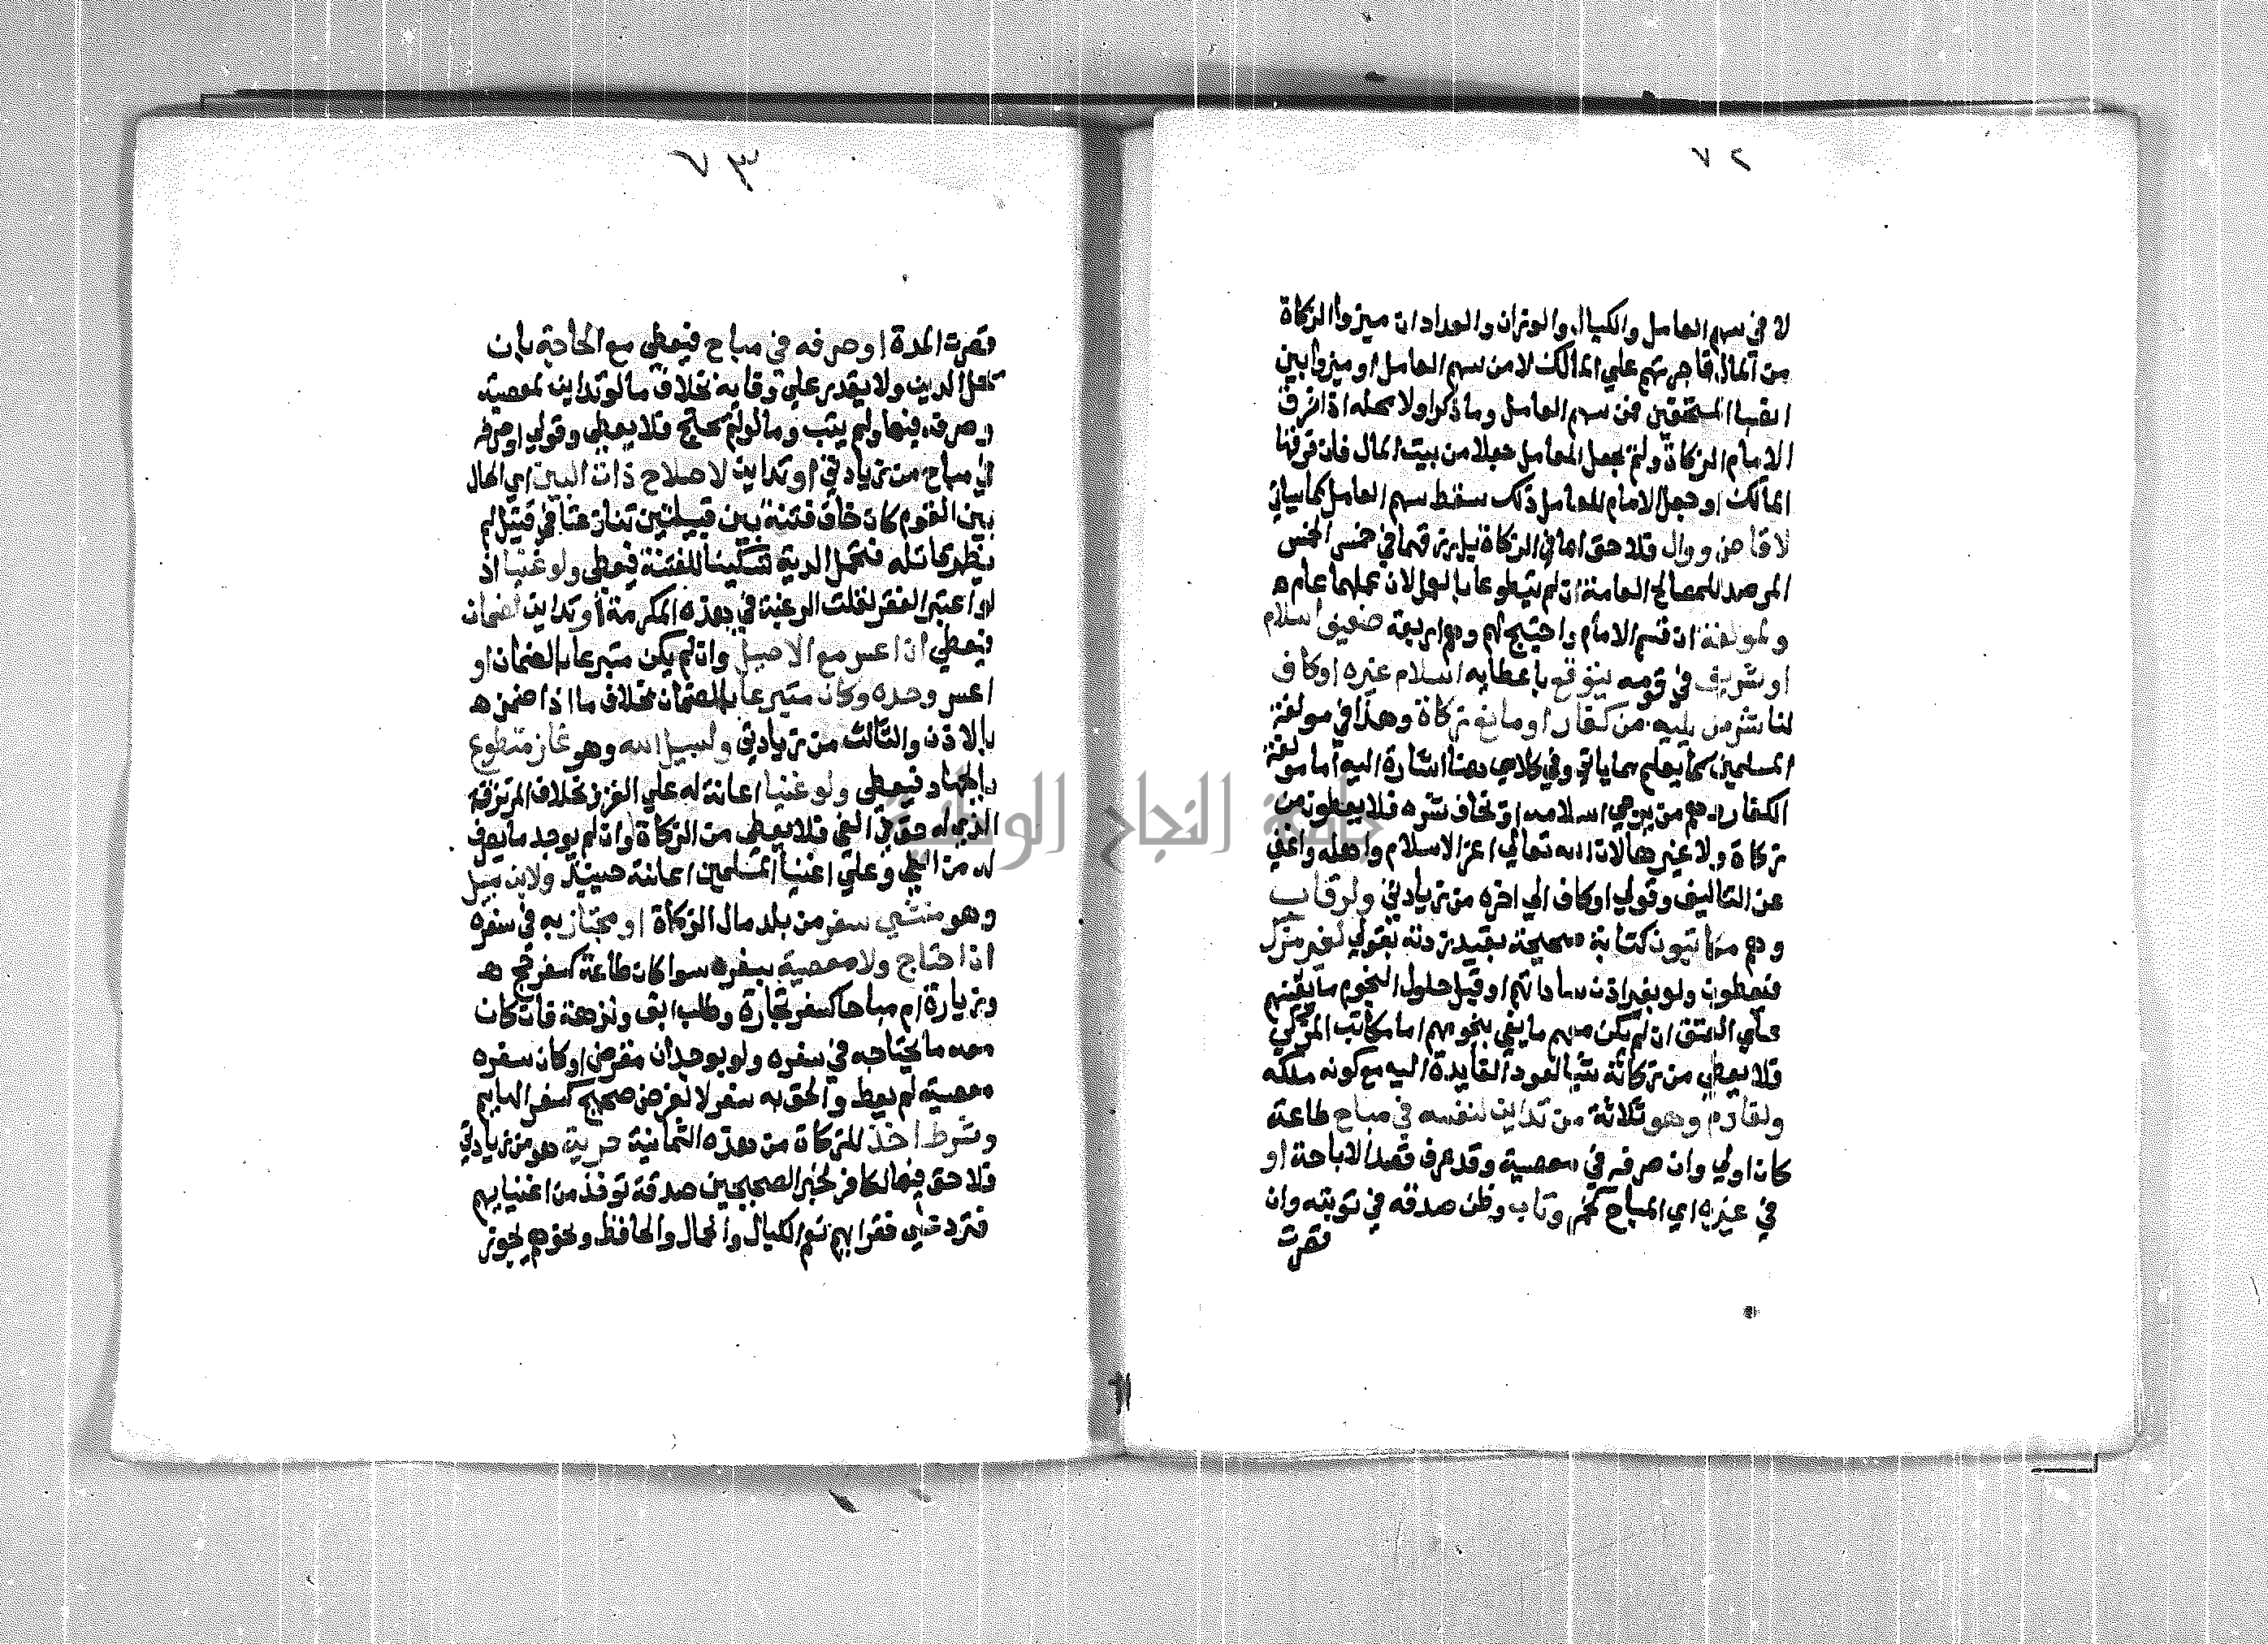 ٧٢
لا في سهم العامل والكيال والوزان والعداد ان ميزوا الزكاة
من المال فاجرتهم علي المالك لا من سهم العامل او ميزوا بين
انصبا المستحقين فمن سهم العامل وما ذكر اولا محله اذا فرق
الامام الزكاة ولم يجعل للعامل جعلا من بيت المال فان فرقها
المالك او جعل الامام للعامل ذلك سقط سهم العامل كما سياتي
لا قاض ووال فلا حق لهما في الزكاة بل رزقهما في خمس الخمس
المرصد للمصالح العامة ان لم يتطوعا بالعمل لان عملهما عام ه
ولمولفة ان قسم الامام واحتيج لهم وهم اربعة ضعيف اسلام
او شريف في قومه يتوقع باعطايه اسلام غيره او كاف
لنا شر من يليه من كفار او مانعي زكاة وهذا في مولفة
المسلمين كما يعلم مما ياتي وفي كلامي هنا اشارة اليه اما مولفة
الكفار وهم من يرجي اسلامه او يخاف شره فلا يعطون من
زكاة ولا غيرها لان الله تعالي اعز الاسلام واهله واغني
عن التاليف وقولي او كاف الي اخره من زيادتي ولرقاب
وهم مكاتبون كتابة صحيحة بقيد زدته بقولي لغير مزك
فيعطون ولو بغير اذن ساداتهم او قبل حلول النجوم ما يعينهم
علي العتق ان لم يكن معهم ما يفي بنجومهم اما مكاتب المزكي
فلا يعطي من زكاته شيا لعود الفايدة اليه مع كونه ملكه
ولغارم وهو ثلاثة من تداين لنفسه في مباح طاعة
كان اولي وان صرفه في معصية وقد عرف قصد الاباحة او
في غيره اي المباح كخمر وتاب وظن صدقه في توبته وان
قصرت
٧٣
قصرت المدة او صرفه في مباح فيعطي مع الحاجة بان
يحل الدين ولا يقدر علي وفايه بخلاف ما لو تداين لمعصية
وصرفه فيها ولم يتب وما لو لم يحتج فلا يعطي وقولي او صرفه
في مباح من زيادتي او تداين لاصلاح ذات البين اي الحال
بين القوم كان خاف فتنة بين قبيلتين تنازعتا في قتيل لم
يظهر قاتله فتحمل الدية تسكينا للفتنة فيعطي ولو غنيا اذ
لو اعتبر الفقر لقلت الرغبة في هذه المكرمة او تداين لضمان
فيعطي ان اعسر مع الاصيل وان لم يكن متبرعا بالضمان او
اعسر وحده وكان متبرعا بالضمان بخلاف ما اذا ضمن ه
بالاذن والثالث من زيادتي ولسبيل الله وهو غاز متطوع
بالجهاد فيعطي ولو غنيا اعانة له علي الغزو بخلاف المرتزق
الذي له حق في الفي فلا يعطي من الزكاة وان لم يوجد ما يصرف
له من الفي وعلي اغنيا المسلمين اعانته حينيذ ولابن سبيل
وهو منشي سفر من بلد مال الزكاة او مجتاز به في سفره
ان احتاج ولا معصية بسفره سوا كان طاعة كسفر حج ه
وزيارة ام مباحا كسفر تجارة وطلب ابق ونزهة فان كان
معه ما يحتاجه في سفره ولو بوجدان مقرض او كان سفره
معصية لم يعط والحق به سفر لا لغرض صحيح كسفر الهايم
وشرط اخذ للزكاة من هذه الثمانية حرية هو من زيادتي
فلا حق فيها لكافر لخبر الصحيحين صدقة توخذ من اغنيايهم
فترد علي فقرايهم نعم الكيال والحمال والحافظ ونحوهم يجوز
جامعة النجاح الوطنية